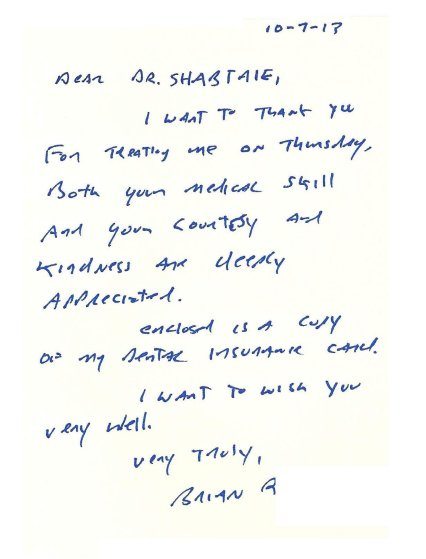 10-7-13
Dear Dr. SHABTAIE,
I want to thank you
For treating me on Thursday,
Both your medical skill
And your courtesy and
kindness are deeply
Appreciated.
enclosed is a copy
of my dental insurance card.
I want to wish you
very well.
very truly,
BRIAN R